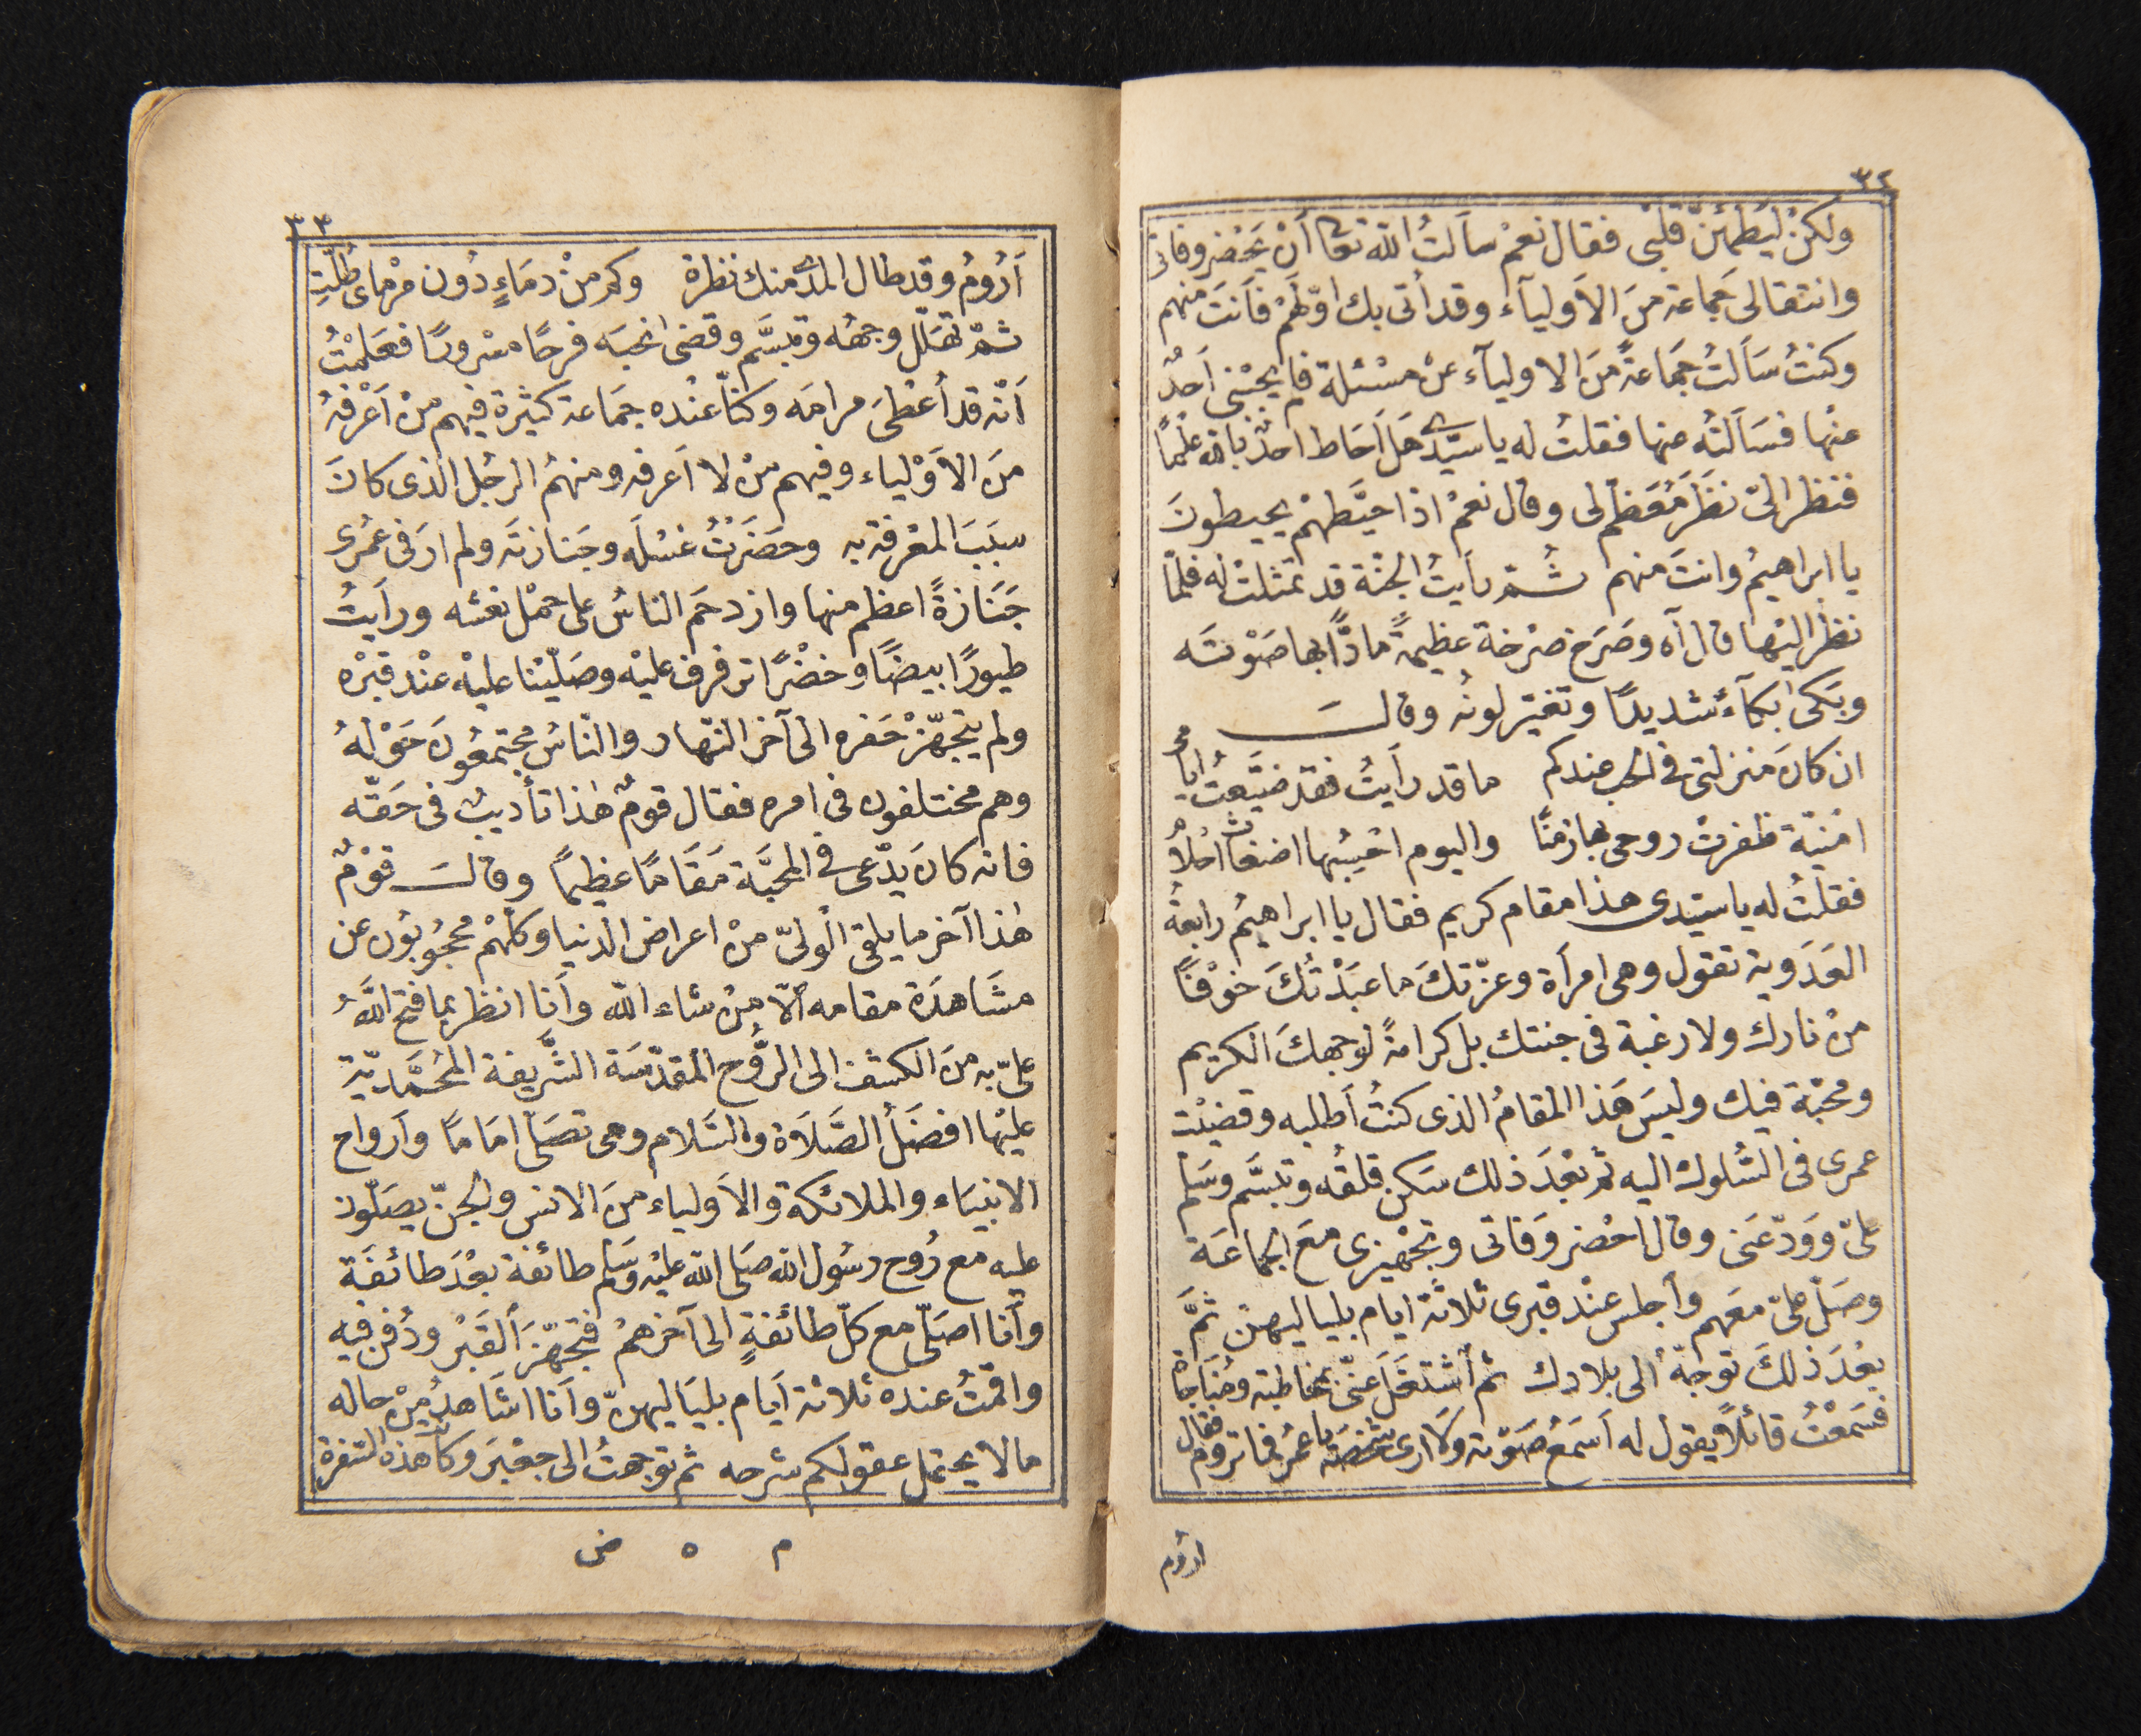 ٣٢
ولكنْ ليَطمَئنّ قلبى فقال نعمْ سألتُ اللّه تعا أنْ يَحْضر وفاتى
وانتقالى جَماعة منَ الاَولياَء وقد أتى بك اوّلهمْ فأنتَ منهم
وكنتُ سَاَلتُ جمَاعةً منَ الاولياَء عنْ مسْئلة فلم يجبْنى اَحدٌ
عنْها فسَاَلته عنها فقلتُ له يا سيّدى هَل اَحَاط احدٌ باللّه علْماً
فنظر الىّ نظَرَ مُعَظم لى وقال نعمْ اذا حيَّطهمْ يحيطونَ
يا ابراهيمُ وانتَ منهم ثمّ رأيتُ الجنّة قد تمثلتْ له فلمّا
نظر اليْها قال آه وصَرَخ صرْخة عظيمةً مادًّا بها صَوْته
وبَكى بكآءً شديدًا وتغيّر لونُه وقالَ
ان كانَ منزلتى فى الحب عندكم ما قد رأيتُ فقد ضيّعتُ أيامى
امْنيّة ظفرتْ روحى بها زمنًا واليوم احْسبُها اضغاث احْلامُ
فقلتُ له يا سيّدى هذا مقام كريم فقال يا ابراهيمُ رابعةُ
العَدَوية تقول وهى امرأة وعزّتكَ ما عبَدْتُكَ خوْفًا
منْ نارك ولا رغبة فى جنتك بل كرامةً لوجهكَ الكريم
ومحبّة فيك وليسَ هَذا المقامُ الذى كنتُ أطلبه وقضيْت
عمرى فى السّلوك اليه ثم بَعْدَ ذلك سَكن قلقُه وتبسَّم وسَلم
علىّ وَودّعَنى وقال احْضر وَفاتى وتجْهيزى معَ الجماعَة
وصَلّ علىّ معَهم وأجلس عنْد قبرى ثلاثةَ ايام بلياليهنّ ثمَّ
بعْدَ ذلكَ توجهّ الى بلادك ثم أشتغَلَ عنّى بمخاطبة ومُنَاجاة
فسَمعْتُ قائلاً يقول له اَسَمعُ صَوْته ولا ارى شخصَه يا عمُر فما تروم فقال
أرُوم
٣٣
اَرُومُ وقد طال المدى منك نظرة وكم منْ دمَاءٍ دُون مرْماى طُلّتِ
ثمّ تهَلّل وجهُه وتبسَّم وقضى نحبَه فرحًا مسْرورًا فعَلمْتُ
اَنّه قد أعْطىَ مرامَه وكنّا عنْده جمَاعة كثيرة فيهم منْ اَعْرفهُ
منَ الاَوْلياء وفيهم منْ لا اَعرفه ومنهُم الرجُل الذى كانَ
سبَبَ المعْرفة به وحضَرْتُ غسْلَه وجَنازتَه ولم ارَ فى عمُرى
جَنازةً اعظم منها وازدحَم الناسُ على حمْل نعْشه ورأيتُ
طيورًا بيضًا وخضْرًا ترفرف عليْه وصَلّيْنا عليْه عنْد قبْره
ولم يتجهّزْ حَفره الى آخر النّهار والنّاسُ مجتمعُونَ حَوْلهُ
وهم مختلفون فى امره فقال قومٌ هٰذا تأديبٌ فى حَقّه
فانه كانَ يدّعى فى المحبَّة مَقَامًا عظيمًا وقالَ قوْمٌ
هٰذا آخر ما يلقى الْولىّ منْ اعراض الدنيا وكلّهمْ محجُوبُون عن
مشَاهدَة مقامه الّا منْ شاءَ اللّه وأنا انظر بما فتح اللّهُ
علىّ به منَ الكشف الى الرُّوح المقدّسَة الشَّريفة المحُمَّديّة
عليْها افضَلُ الصَّلَاة والسَّلام وهى تصَلّى امَامًا وأرواح
الانبيَاء والملائكة والاَولياء منَ الانس والجنّ يصَلّون
عليه مع رُوح رسُول اللّه صَلى اللّه عليْه وسَلم طائفة بعْدَ طائفَة
وأنا اصَلّى مع كلّ طائفةٍ الى آخرهمْ فتجهّزَ القَبْرُ ودُفن فيه
واقمْتُ عنده ثلاثة أيام بليَاليهنّ وأنا اشَاهدُ منْ حاله
ما لا يحتمل عقولكم شرحه ثم توجهتُ الى جعْبَر وكانت هذه السّفرة
م ه ض